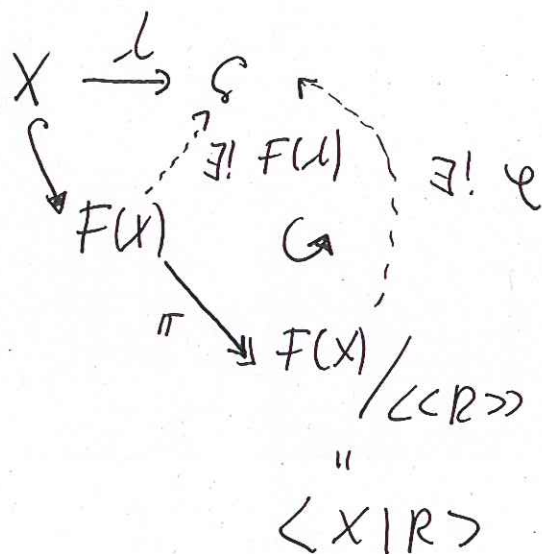 X λ G
∃! F(λ) ∃! φ
F(X)
π F(X)/<<R>>
"
<X|R>